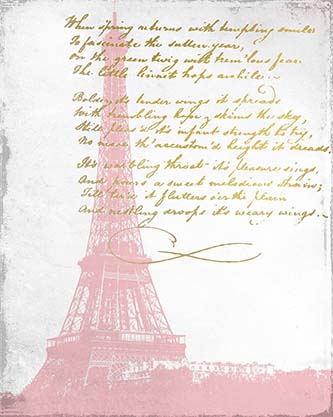 When spring returns with tempting smiles
To fascinate the sullen year,
On the green twig with trem'lous fear
The little linnet hops awhile.
Below its tender wings it spreads
With trembling hope skims the sky,
While pleas'd its infant strength to try,
No more th' accustom'd height it dreads.
Its warbling throat its pleasure sings,
And pours a sweet melodious strain;
Till tir'd it flutters o'er the plain
And nestling droops its weary wings.